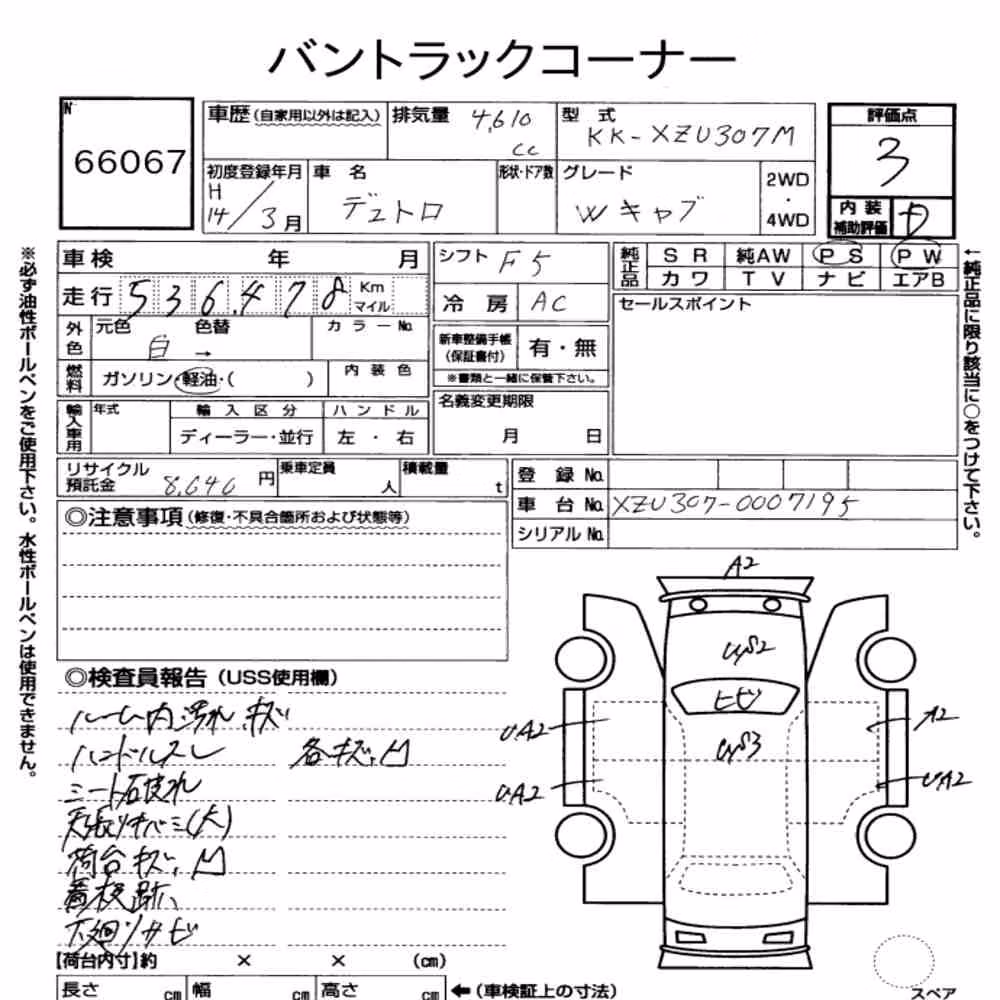 バントラックコーナー
No 66067
車歴(自家用以外は記入) 排気量 4,610 cc 型式 KK-XZU307M 評価点 3
初度登録年月 H14/3月 車名 デュトロ 形状・ドア数 グレード Wキャブ 2WD・4WD
内装補助評価 D
車検 年 月 シフト F5 純正品 SR 純AW PS PW
走行 536,478 Km マイル 冷房 AC カワ TV ナビ エアB
外色 元色 白 → 色替 カラーNo.
セールスポイント
燃料 ガソリン・軽油・( ) 内装色
新車整備手帳(保証書付) 有・無
※書類と一緒に保管下さい。
輸入車用 年式 輸入区分 ハンドル
ディーラー・並行 左・右
名義変更期限 月 日
リサイクル預託金 8,640円 乗車定員 人 積載量 t
登録No.
車台No. XZU307-0007195
シリアルNo.
◎注意事項(修復・不具合箇所および状態等)
◎検査員報告(USS使用欄)
ルーム内汚れ、キズ
ハンドルスレ 各キズ、凹
シート破れ
天張り (大)
荷台キズ、凹
跡
下廻りサビ
【荷台内寸】約 × × (cm)
長さ cm 幅 cm 高さ cm ←(車検証上の寸法)
A2
ヒビ
UA2
A2
UA2
UA2
スペア
※必ず油性ボールペンをご使用下さい。水性ボールペンは使用できません。
↑純正品に限り該当に○をつけて下さい。